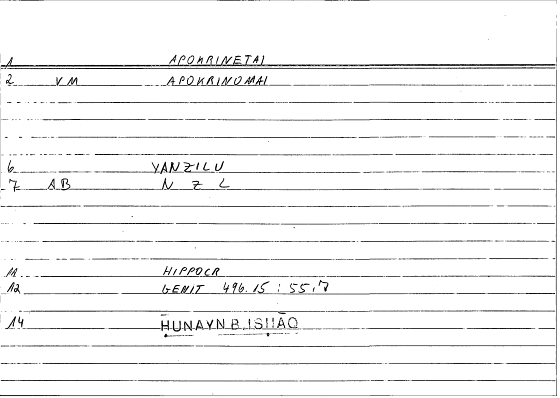 1 APOKRINETAI
2 VM APOKRINOMAI
6 YANZILU
7 AB N Z L
11 HIPPOCR
12 GENIT 496.15 : 55.7
14 ḤUNAYN B. ISḤĀQ